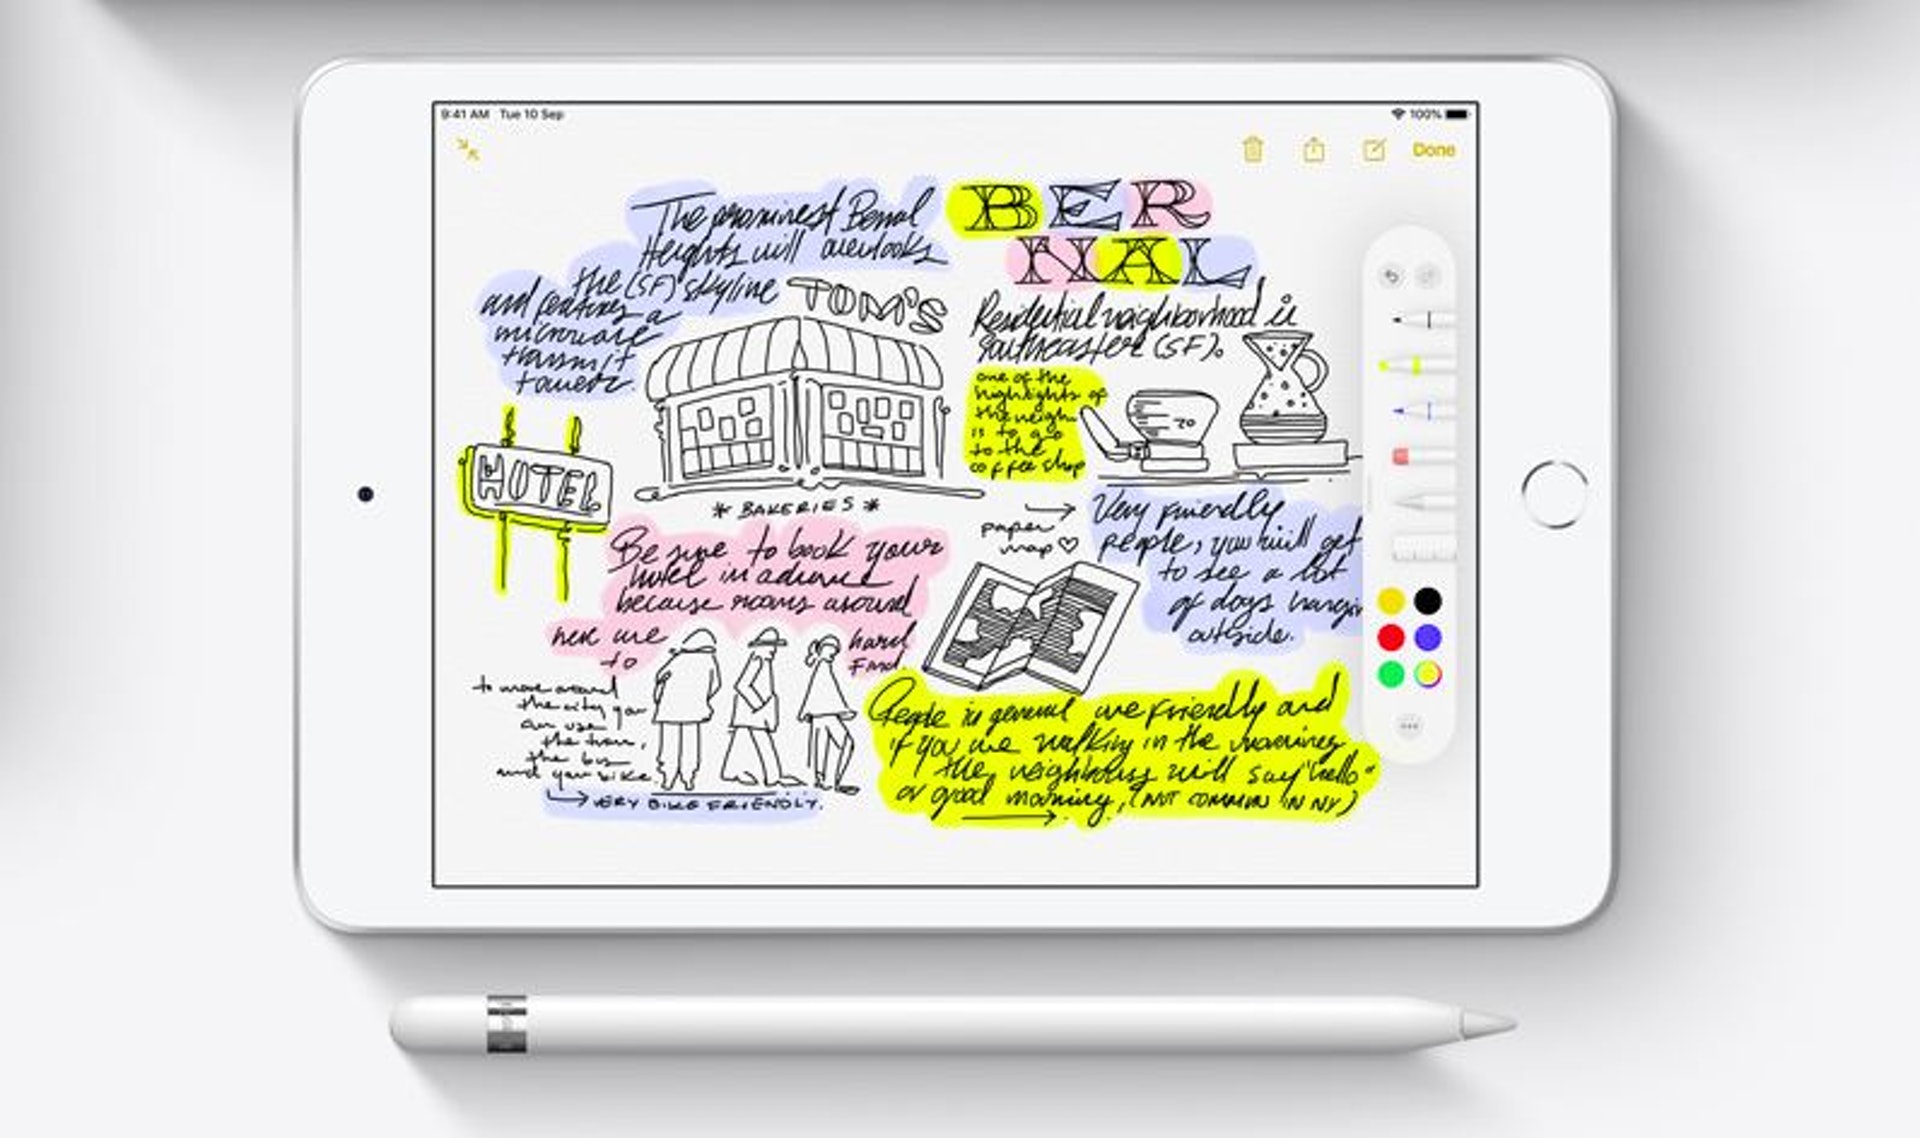 9:41 AM Tue 10 Sep
100%
Done
The prominest Bernal
Heights will overlooks
the (SF) skyline
and features a
microware
transmit
tower.
BER
NAL
TOM'S
Residential neighborhood is
Southeaster (SF).
one of the
highlights of
the neigh
is to go
to the
coffee shop
20
HOTEL
* BAKERIES *
Be sure to book your
hotel in advance
because rooms around
here are
to
hard
Find.
paper
map
Very friendly
people, you will get
to see a lot
of dogs hangin
outside.
to move around
the city you
can use
the tram,
the bus
and your bike.
VERY BIKE FRIENDLY.
People in general are friendly and
if you are walking in the mornings
the neighbours will say "hello"
or good morning, (NOT COMMON IN NY)